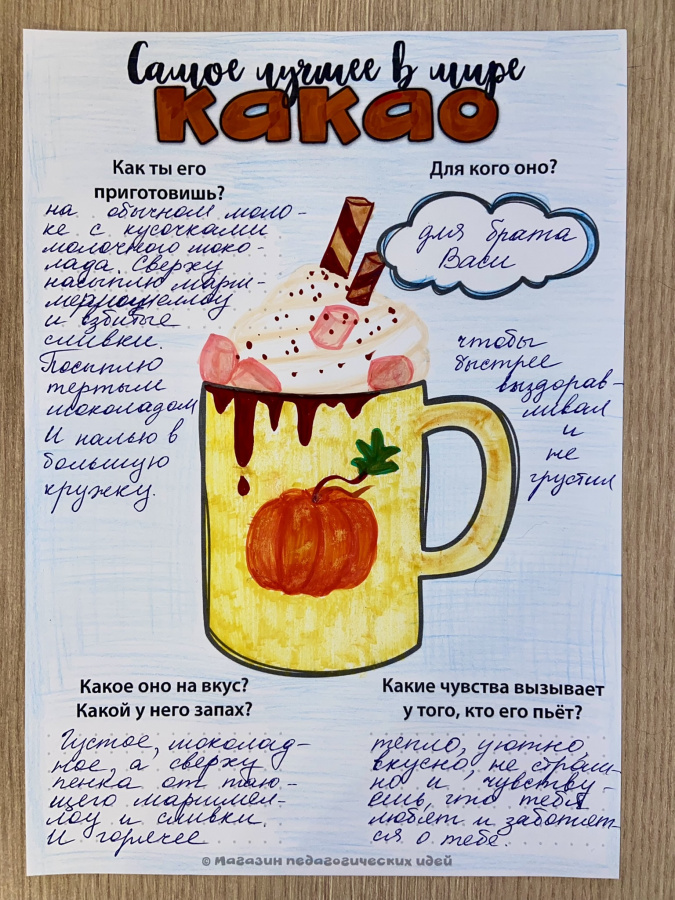 Самое лучшее в мире
какао
Как ты его
приготовишь?
на обычном моло-
ке с кусочками
молочного шоко-
лада. Сверху
насыплю марш-
и взбитые
сливки.
Посыплю
тертым
шоколадом
И налью в
большую
кружку.
Для кого оно?
для брата
Васи
чтобы
быстрее
выздорав-
ливал
и
не
грустил
Какое оно на вкус?
Какой у него запах?
Густое, шоколад-
ное, а сверху
пенка от таю-
щего маршмел-
лоу и сливки.
И горячее
Какие чувства вызывает
у того, кто его пьёт?
тепло, уютно,
вкусно, не страш-
но и чувству-
ешь, что тебя
любят и заботят-
ся о тебе.
© Магазин педагогических идей